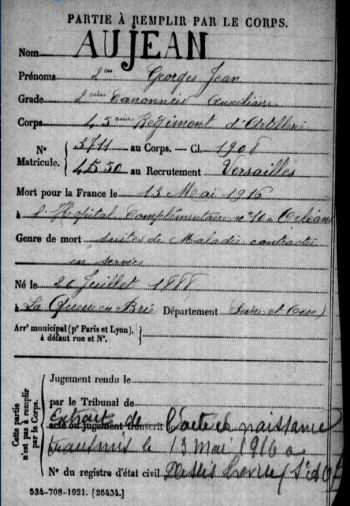 PARTIE À REMPLIR PAR LE CORPS.
Nom AUJEAN
Prénoms Georges Jean
Grade 2eme Canonnier Auxiliaire
Corps 43eme Régiment d'Artillerie
N° Matricule. 3711 au Corps. — Cl. 1908
4550 au Recrutement Versailles
Mort pour la France le 13 Mai 1916
à l'Hopital Complémentaire n° 10 Orléans
Genre de mort suites de Maladie contractée
en service
Né le 26 Juillet 1888
La Queue en Brie Département Seine et Oise
Arrt municipal (pr Paris et Lyon), à défaut rue et N°.
Cette partie n'est pas à remplir par le Corps.
Jugement rendu le
par le Tribunal de
acte ou jugement transcrit
Extrait de l'acte de naissance
transmis le 13 Mai 1916 a
N° du registre d'état civil
534-708-1921. [26434.]